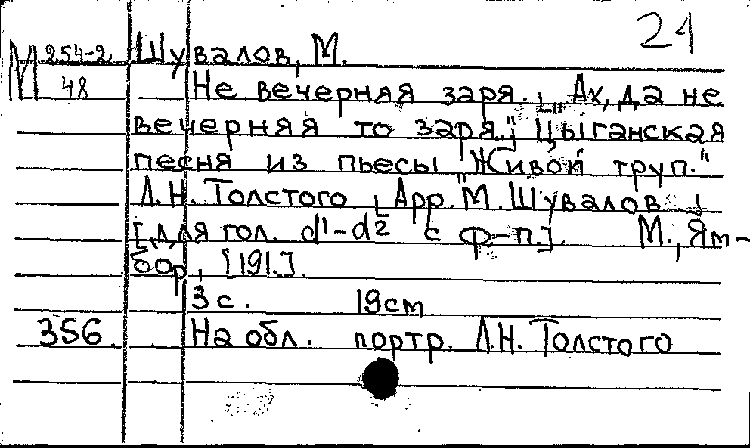 21
М 254-2 Шувалов, М.
48 Не вечерняя заря. [„Ах, да не
вечерняя то заря."] Цыганская
песня из пьесы "Живой труп."
Л.Н. Толстого [Арр. М. Шувалов.]
[для гол. d¹-d² с ф-п.]. М., Ям-
бор, [191.].
3 с. 19см
356 На обл. портр. Л.Н. Толстого